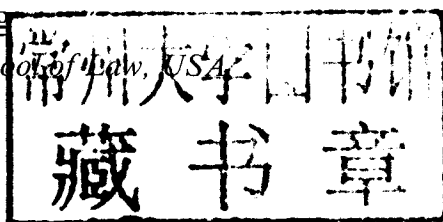 ool of Law, USA
常州大学图书馆
藏书章